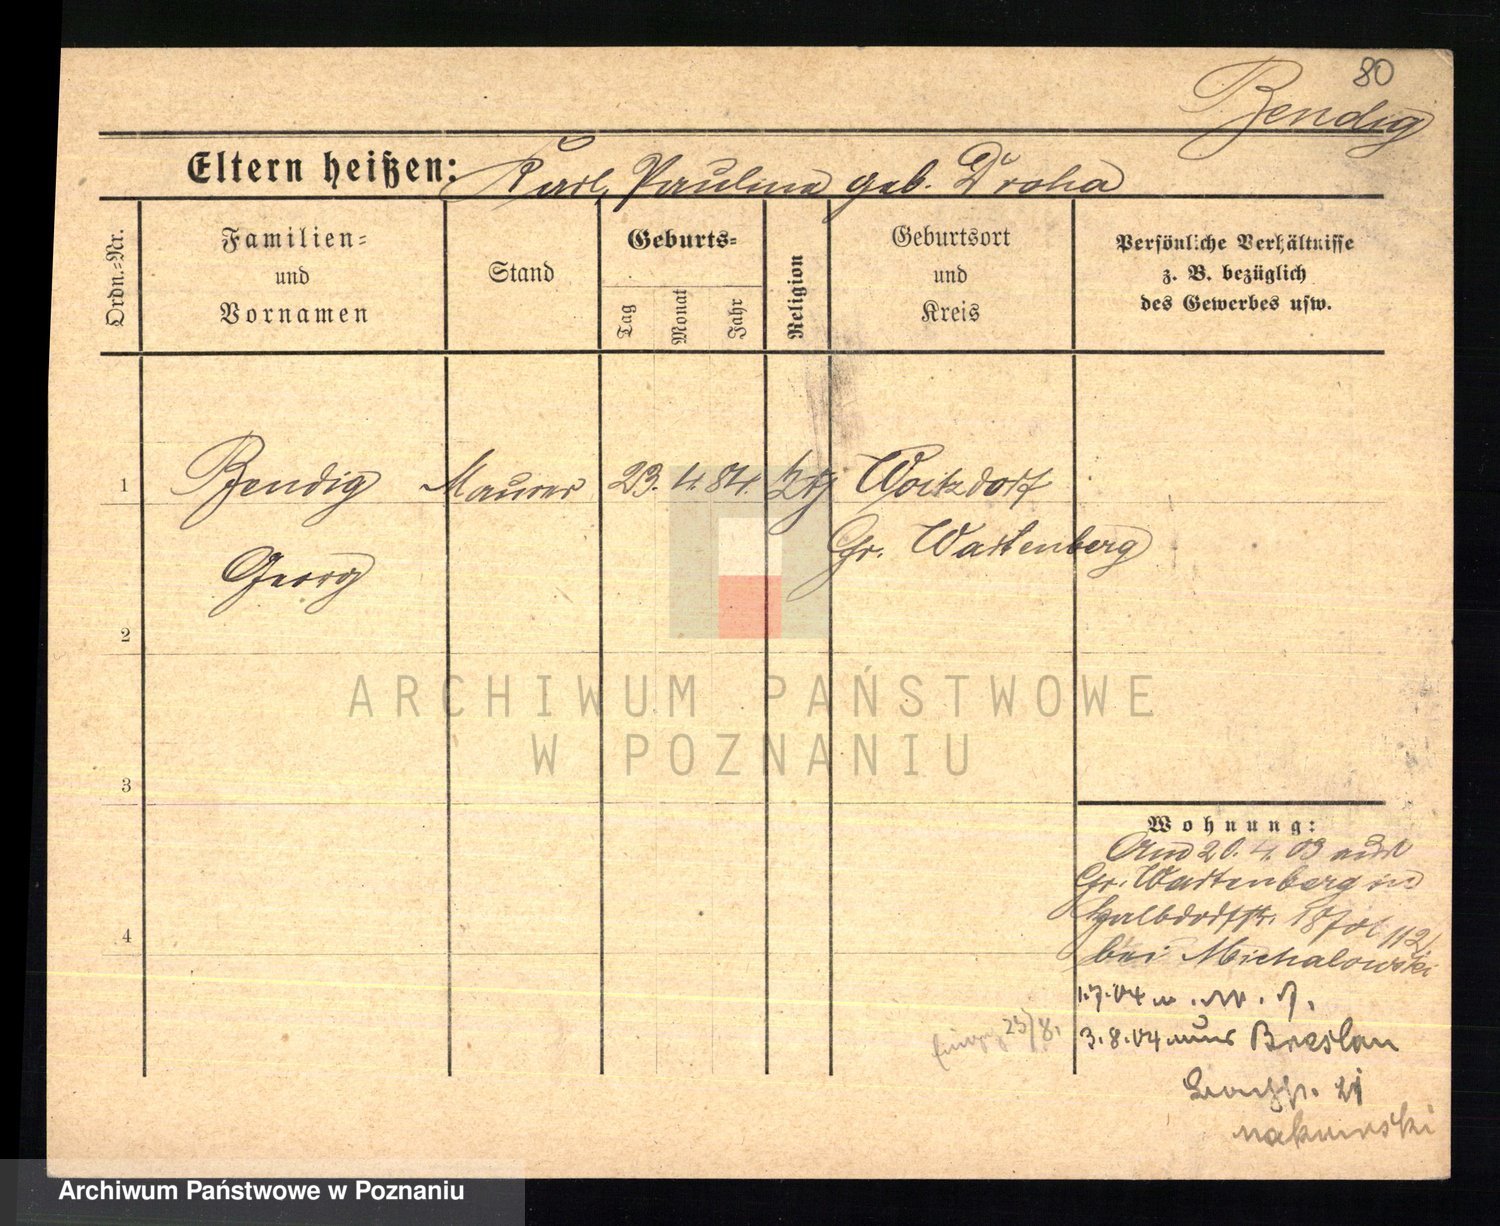 80
Bendig
Eltern heißen: Karl, Pauline geb. Droha
Ordn.-Nr.
Familien-
und
Vornamen
Stand
Geburts-
Tag
Monat
Jahr
Religion
Geburtsort
und
Kreis
Persönliche Verhältnisse
z. B. bezüglich
des Gewerbes usw.
1 Bendig Maurer 23. 4. 84. Woitzdorf
Gr. Wartenberg
Georg
2
3
4
ARCHIWUM PAŃSTWOWE
W POZNANIU
Wohnung:
20. 4. 03 aus
Gr. Wartenberg in
Halbdorfstr. 18
bei Michalowski
1.7.04
3.8.04 Breslau
25/8.
21
Archiwum Państwowe w Poznaniu